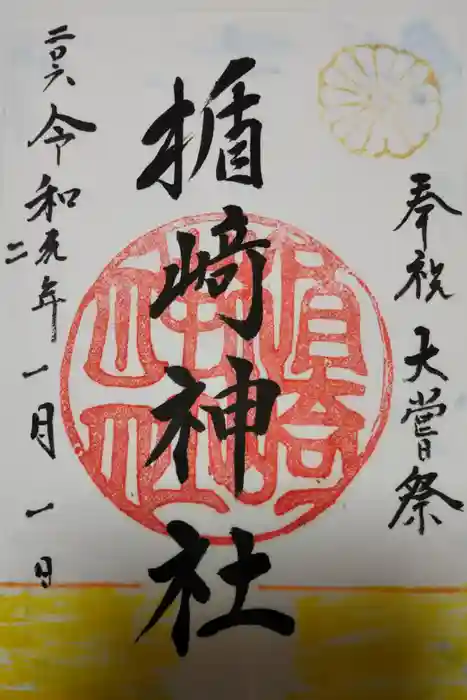 奉祝 大嘗祭
楯崎神社
楯崎神社
令和元年一月一日
二